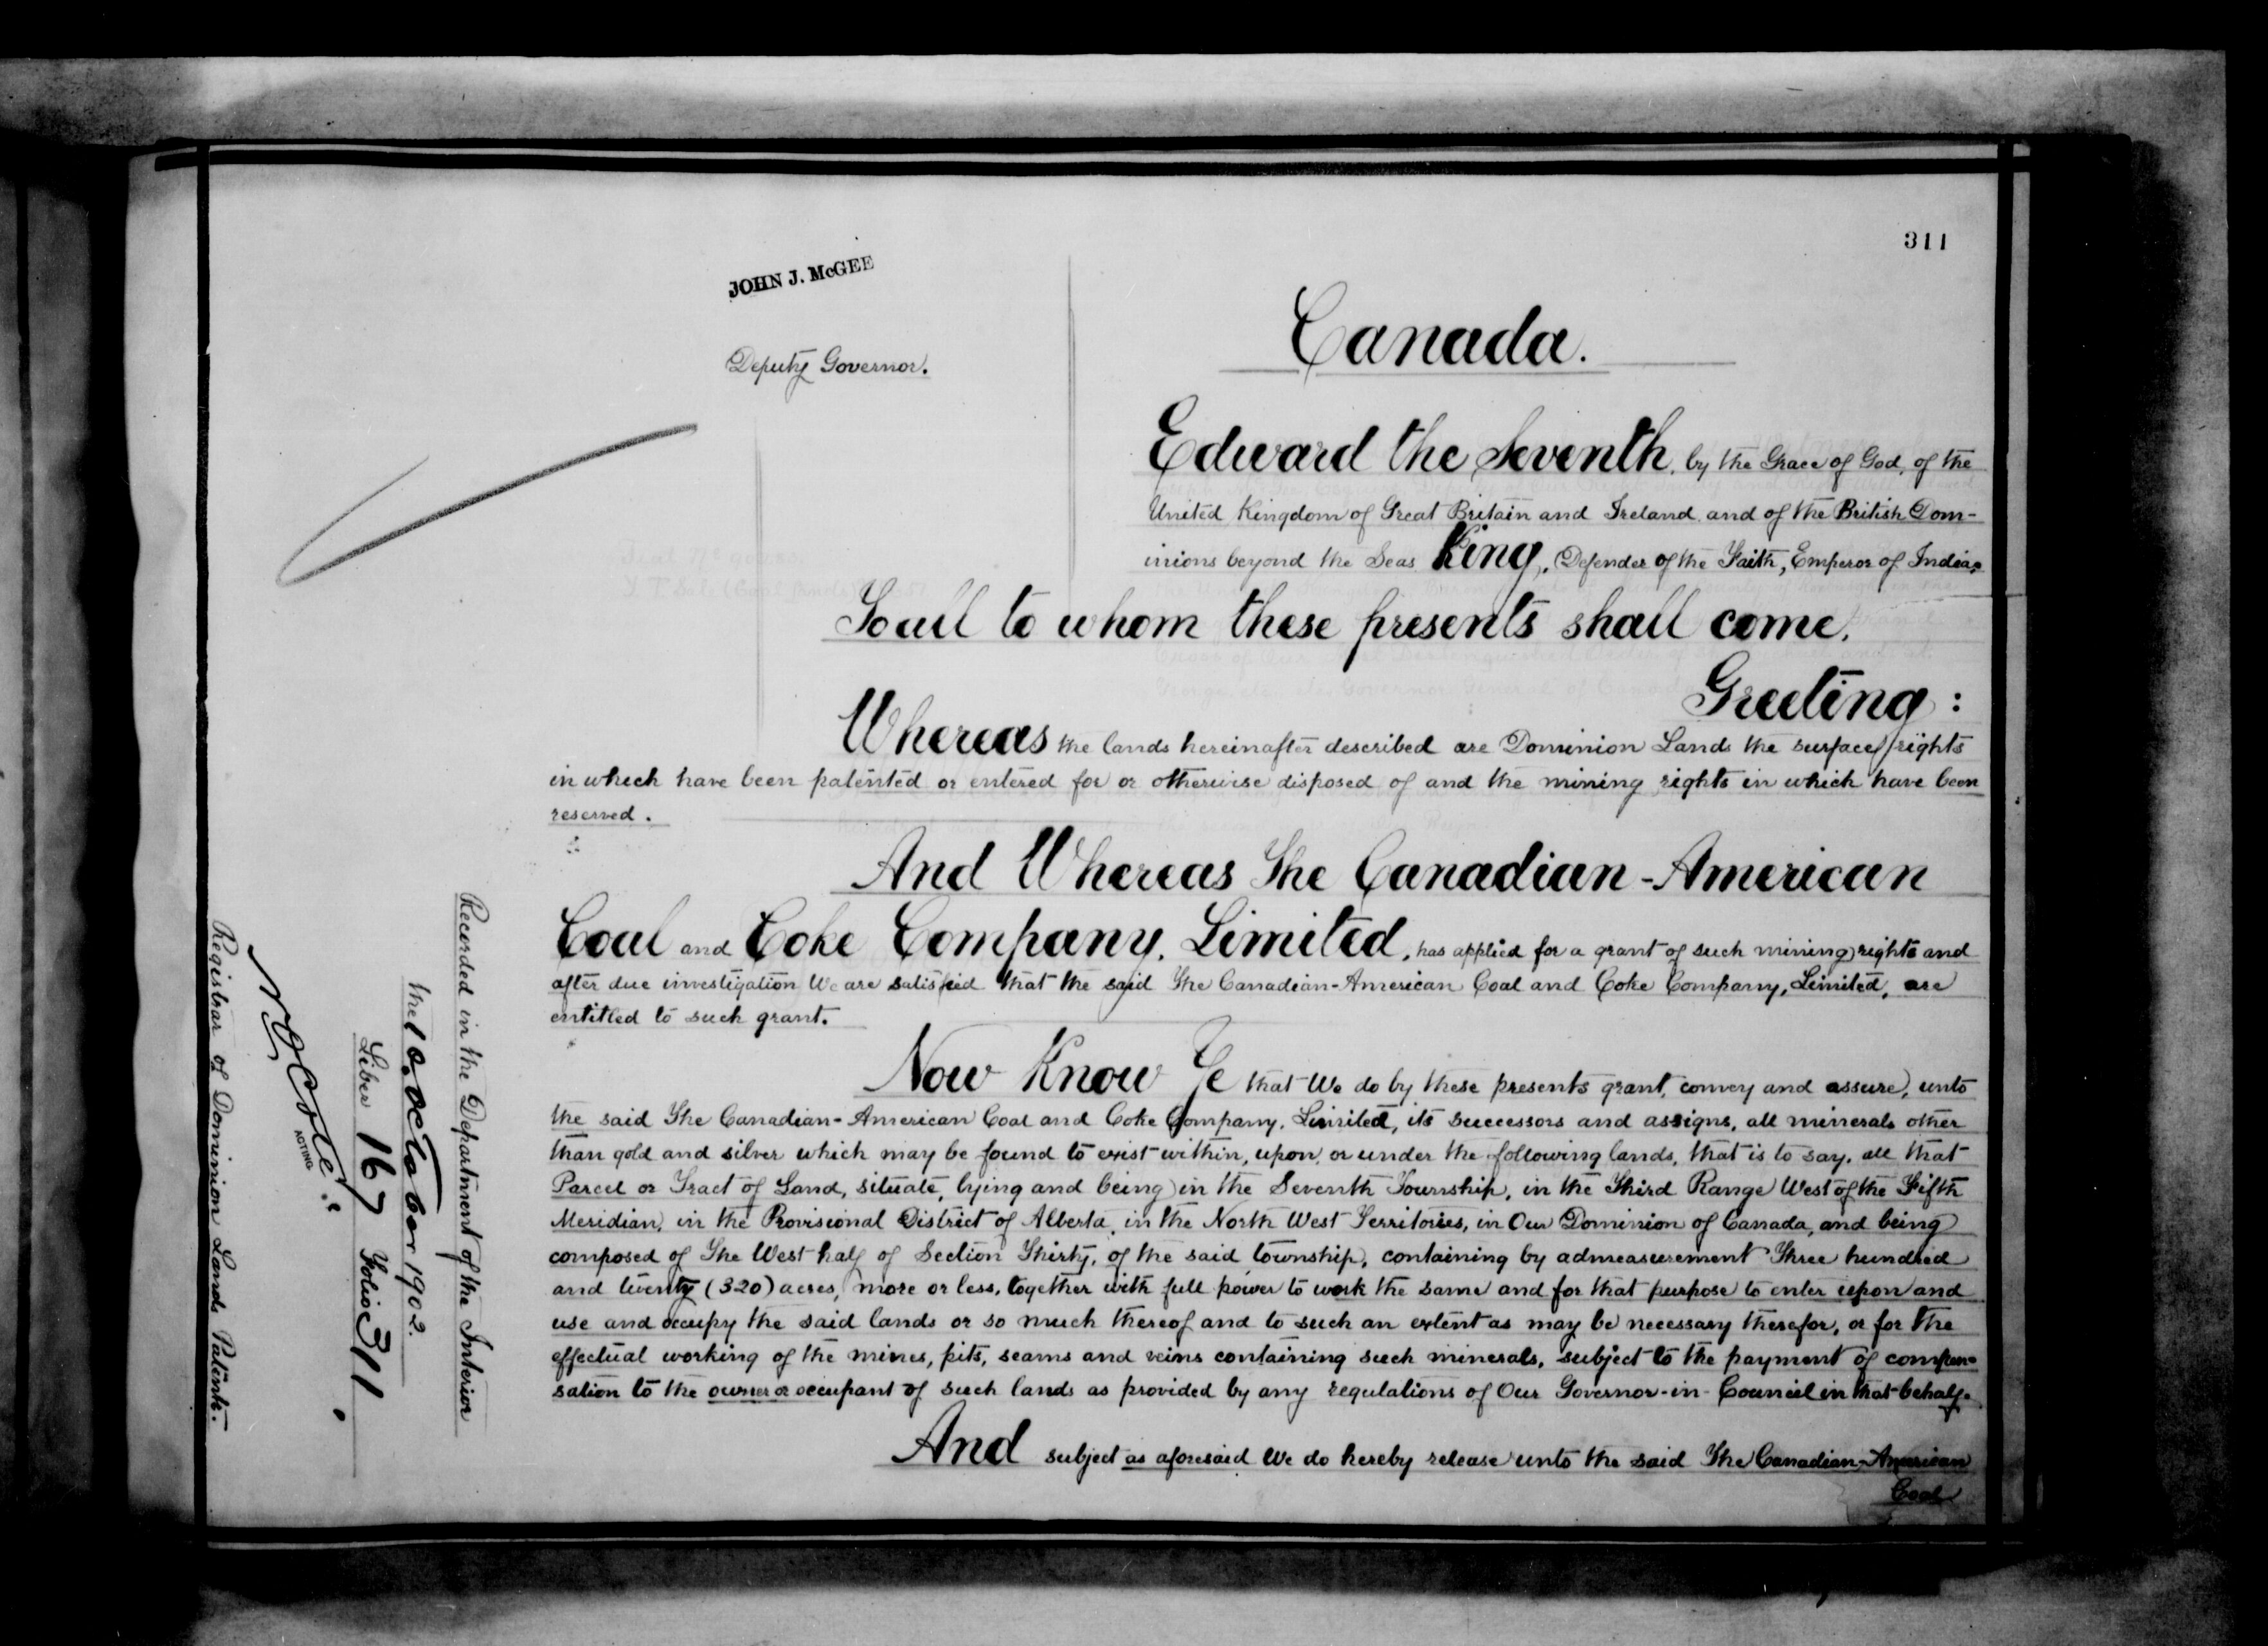 311
JOHN J. McGEE
Deputy Governor.
Canada.
Edward the Seventh, by the Grace of God, of the
United Kingdom of Great Britain and Ireland, and of the British Dom-
inions beyond the Seas King, Defender of the Faith, Emperor of India,
To all to whom these presents shall come,
Greeting:
Whereas the lands hereinafter described are Dominion Lands the surface rights
in which have been patented or entered for or otherwise disposed of and the mining rights in which have been
reserved.
And Whereas The Canadian-American
Coal and Coke Company, Limited, has applied for a grant of such mining rights and
after due investigation We are satisfied that the said The Canadian-American Coal and Coke Company, Limited, are
entitled to such grant.
Now Know Ye that We do by these presents grant, convey and assure, unto
the said The Canadian-American Coal and Coke Company, Limited, its successors and assigns, all minerals other
than gold and silver which may be found to exist within, upon, or under the following lands, that is to say, all that
Parcel or Tract of Land, situate, lying and being in the Seventh Township, in the Third Range West of the Fifth
Meridian, in the Provisional District of Alberta, in the North West Territories, in Our Dominion of Canada, and being
composed of The West half of Section Thirty, of the said township, containing by admeasurement Three hundred
and twenty (320) acres, more or less, together with full power to work the same and for that purpose to enter upon and
use and occupy the said lands or so much thereof and to such an extent as may be necessary therefor, or for the
effectual working of the mines, pits, seams and veins containing such minerals, subject to the payment of compen-
sation to the owner or occupant of such lands as provided by any regulations of Our Governor-in-Council in that behalf.
And subject as aforesaid We do hereby release unto the said The Canadian-American
Coal
Recorded in the Department of the Interior
the 10. October 1902.
Liber 167 Folio 311
ACTING
Registrar of Dominion Lands Patents.